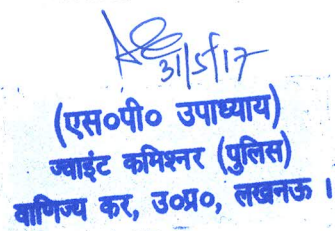 31/5/17
(एस०पी० उपाध्याय)
ज्वाइंट कमिश्नर (पुलिस)
वाणिज्य कर, उ०प्र०, लखनऊ ।